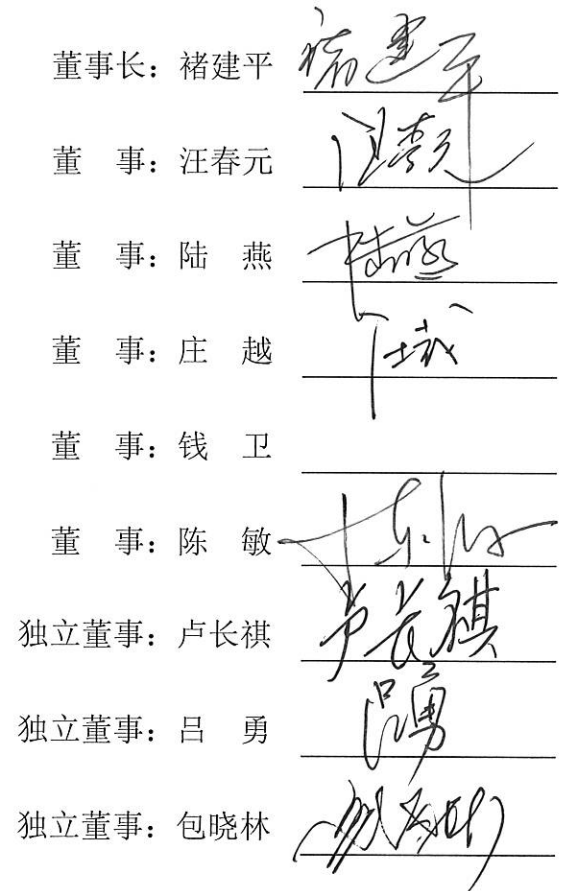 董事长：褚建平 褚建平
董　事：汪春元 汪春元
董　事：陆　燕 陆燕
董　事：庄　越
董　事：钱　卫
董　事：陈　敏 陈敏
独立董事：卢长祺 卢长祺
独立董事：吕　勇 吕勇
独立董事：包晓林